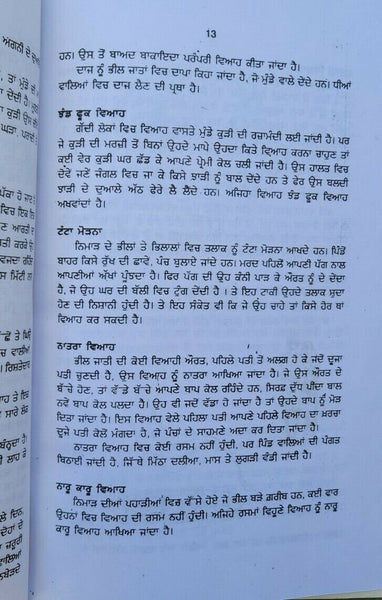 13
ਹਨ। ਉਸ ਤੋਂ ਬਾਅਦ ਬਾਕਾਇਦਾ ਪਰੰਪਰੀ ਵਿਆਹ ਕੀਤਾ ਜਾਂਦਾ ਹੈ।
ਦਾਜ ਨੂੰ ਭੀਲ ਜਾਤਾਂ ਵਿਚ ਦਾਪਾ ਕਿਹਾ ਜਾਂਦਾ ਹੈ, ਜੋ ਮੁੰਡੇ ਵਾਲੇ ਦੇਂਦੇ ਹਨ। ਧੀਆਂ
ਵਾਲਿਆਂ ਵਿਚ ਦਾਜ ਲੈਣ ਦੀ ਪ੍ਰਥਾ ਹੈ।
ਝੰਡ ਫੂਕ ਵਿਆਹ
ਗੱਦੀ ਲੋਕਾਂ ਵਿਚ ਵਿਆਹ ਵਾਸਤੇ ਮੁੰਡੇ ਕੁੜੀ ਦੀ ਰਜ਼ਾਮੰਦੀ ਲਈ ਜਾਂਦੀ ਹੈ। ਪਰ
ਜੇ ਕੁੜੀ ਦੀ ਮਰਜ਼ੀ ਤੋਂ ਬਿਨਾਂ ਉਹਦੇ ਮਾਪੇ ਉਹਦਾ ਕਿਤੇ ਵਿਆਹ ਕਰਨਾ ਚਾਹੁਣ ਤਾਂ
ਕਈ ਵੇਰ ਕੁੜੀ ਘਰ ਛੱਡ ਕੇ ਆਪਣੇ ਪ੍ਰੇਮੀ ਕੋਲ ਚਲੀ ਜਾਂਦੀ ਹੈ। ਉਸ ਹਾਲਤ ਵਿਚ
ਦੋਵੇਂ ਜਣੇ ਜੰਗਲ ਵਿਚ ਜਾ ਕੇ ਕਿਸੇ ਝਾੜੀ ਨੂੰ ਬਾਲ ਦੇਂਦੇ ਹਨ ਤੇ ਫੇਰ ਉਸ ਬਲਦੀ
ਝਾੜੀ ਦੇ ਦੁਆਲੇ ਅੱਠ ਫੇਰੇ ਲੈ ਲੈਂਦੇ ਹਨ। ਅਜਿਹਾ ਵਿਆਹ ਝੰਡ ਫੂਕ ਵਿਆਹ
ਅਖਵਾਂਦਾ ਹੈ।
ਟੰਟਾ ਮੋੜਨਾ
ਨਿਮਾੜ ਦੇ ਭੀਲਾਂ ਤੇ ਭਿਲਾਲਾਂ ਵਿਚ ਤਲਾਕ ਨੂੰ ਟੰਟਾ ਮੋੜਨਾ ਆਖਦੇ ਹਨ। ਪਿੰਡੋਂ
ਬਾਹਰ ਕਿਸੇ ਰੁੱਖ ਦੀ ਛਾਵੇਂ, ਪੰਚ ਬੁਲਾਏ ਜਾਂਦੇ ਹਨ। ਮਰਦ ਪਹਿਲੋਂ ਆਪਣੀ ਪੱਗ ਨਾਲ
ਆਪਣੀਆਂ ਅੱਖਾਂ ਪੂੰਝਦਾ ਹੈ। ਫਿਰ ਪੱਗ ਦੀ ਉਹ ਕੰਨੀ ਪਾੜ ਕੇ ਔਰਤ ਨੂੰ ਦੇ ਦੇਂਦਾ
ਹੈ, ਜੋ ਉਹ ਘਰ ਦੀ ਬੱਲੀ ਵਿਚ ਟੁੰਗ ਦੇਂਦੀ ਹੈ। ਤੇ ਇਹ ਟਾਕੀ ਉਹਦੇ ਤਲਾਕ ਸ਼ੁਦਾ
ਹੋਣ ਦੀ ਨਿਸ਼ਾਨੀ ਹੁੰਦੀ ਹੈ। ਤੇ ਇਹ ਸੰਕੇਤ ਵੀ ਕਿ ਜੇ ਉਹ ਚਾਹੇ ਤਾਂ ਕਿਸੇ ਹੋਰ ਥਾਂ
ਵਿਆਹ ਕਰ ਸਕਦੀ ਹੈ।
ਨਾਤਰਾ ਵਿਆਹ
ਭੀਲ ਜਾਤੀ ਦੀ ਕੋਈ ਵਿਆਹੀ ਔਰਤ, ਪਹਿਲੇ ਪਤੀ ਤੋਂ ਅਲਗ ਹੋ ਕੇ ਜਦੋਂ ਦੂਜਾ
ਪਤੀ ਚੁਣਦੀ ਹੈ, ਇਸ ਵਿਆਹ ਨੂੰ ਨਾਤਰਾ ਆਖਿਆ ਜਾਂਦਾ ਹੈ। ਜੇ ਉਸ ਔਰਤ ਦੇ
ਬੱਚੇ ਹੋਣ, ਤਾਂ ਵੱਡੇ ਬੱਚੇ ਆਪਣੇ ਬਾਪ ਕੋਲ ਰਹਿੰਦੇ ਹਨ, ਸਿਰਫ਼ ਦੁੱਧ ਪੀਂਦਾ ਬਾਲ
ਨਵੇਂ ਬਾਪ ਕੋਲ ਪਲਦਾ ਹੈ। ਉਹ ਵੀ ਜਦੋਂ ਵੱਡਾ ਹੋ ਜਾਂਦਾ ਹੈ ਤਾਂ ਉਹਦੇ ਬਾਪ ਨੂੰ ਮੋੜ
ਦਿਤਾ ਜਾਂਦਾ ਹੈ। ਇਸ ਵਿਆਹ ਵੇਲੇ ਪਹਿਲਾ ਪਤੀ ਆਪਣੇ ਪਹਿਲੇ ਵਿਆਹ ਦਾ ਖ਼ਰਚਾ
ਦੂਜੇ ਪਤੀ ਕੋਲੋਂ ਮੰਗਦਾ ਹੈ, ਜੋ ਪੰਚਾਂ ਦੇ ਸਾਹਮਣੇ ਅਦਾ ਕਰ ਦਿਤਾ ਜਾਂਦਾ ਹੈ।
ਨਾਤਰਾ ਵਿਆਹ ਵੇਲੇ ਕੋਈ ਰਸਮ ਨਹੀਂ ਹੁੰਦੀ, ਪਰ ਪਿੰਡ ਵਾਲਿਆਂ ਦੀ ਪੰਗਤ
ਬਿਠਾਈ ਜਾਂਦੀ ਹੈ, ਜਿੱਥੇ ਮਿੱਠਾ ਦਲੀਆ, ਮਾਸ ਤੇ ਲੁਗੜੀ ਵੰਡੀ ਜਾਂਦੀ ਹੈ।
ਨਾਰੂ ਕਾਰੂ ਵਿਆਹ
ਨਿਮਾੜ ਦੀਆਂ ਪਹਾੜੀਆਂ ਵਿਚ ਵੱਸੇ ਹੋਏ ਜੋ ਭੀਲ ਬੜੇ ਗਰੀਬ ਹਨ, ਕਈ ਵਾਰ
ਉਹਨਾਂ ਵਿਚ ਵਿਆਹ ਦੀ ਰਸਮ ਨਹੀਂ ਹੁੰਦੀ। ਅਜਿਹੇ ਰਸਮਾਂ ਵਿਹੂਣੇ ਵਿਆਹ ਨੂੰ ਨਾਰੂ
ਕਾਰੂ ਵਿਆਹ ਆਖਿਆ ਜਾਂਦਾ ਹੈ।